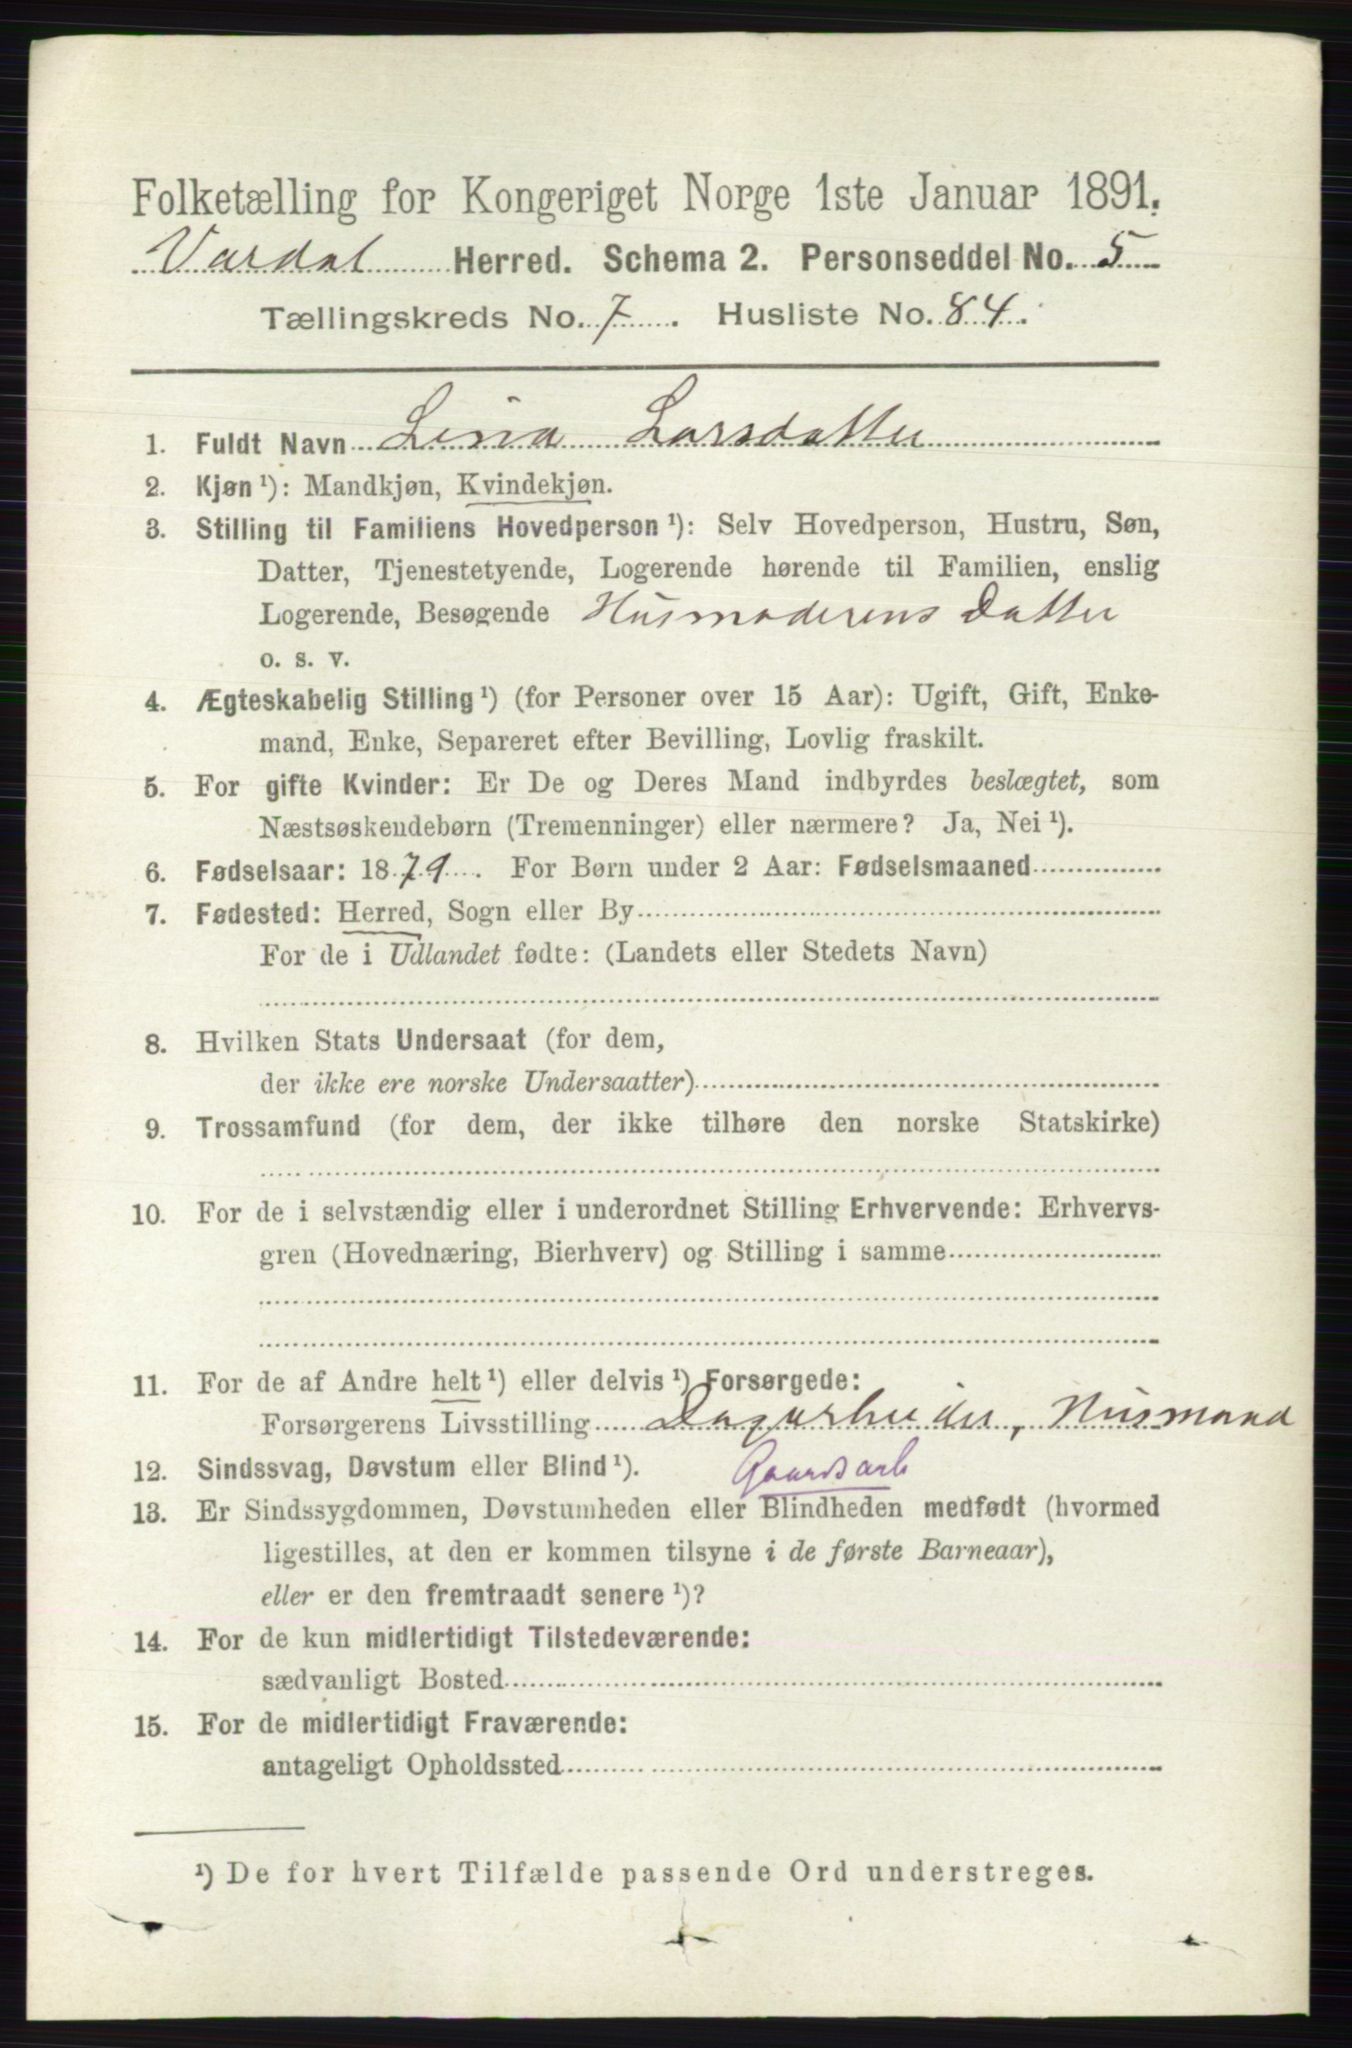 Folketælling for Kongeriget Norge 1ste Januar 1891.
Vardal Herred. Schema 2. Personseddel No. 5
Tællingskreds No. 7. Husliste No. 84.
1. Fuldt Navn Lina Larsdatter
2. Kjøn ¹): Mandkjøn, Kvindekjøn.
3. Stilling til Familiens Hovedperson ¹): Selv Hovedperson, Hustru, Søn,
Datter, Tjenestetyende, Logerende hørende til Familien, enslig
Logerende, Besøgende Husmoderens Datter
o. s. v.
4. Ægteskabelig Stilling ¹) (for Personer over 15 Aar): Ugift, Gift, Enke-
mand, Enke, Separeret efter Bevilling, Lovlig fraskilt.
5. For gifte Kvinder: Er De og Deres Mand indbyrdes beslægtet, som
Næstsøskendebørn (Tremenninger) eller nærmere? Ja, Nei ¹).
6. Fødselsaar: 1879. For Børn under 2 Aar: Fødselsmaaned
7. Fødested: Herred, Sogn eller By
For de i Udlandet fødte: (Landets eller Stedets Navn)
8. Hvilken Stats Undersaat (for dem,
der ikke ere norske Undersaatter)
9. Trossamfund (for dem, der ikke tilhøre den norske Statskirke)
10. For de i selvstændig eller i underordnet Stilling Erhvervende: Erhvervs-
gren (Hovednæring, Bierhverv) og Stilling i samme
11. For de af Andre helt ¹) eller delvis ¹) Forsørgede:
Forsørgerens Livsstilling Dagarbeider, Husmand
12. Sindssvag, Døvstum eller Blind ¹). Gaardsarb
13. Er Sindssygdommen, Døvstumheden eller Blindheden medfødt (hvormed
ligestilles, at den er kommen tilsyne i de første Barneaar),
eller er den fremtraadt senere ¹)?
14. For de kun midlertidigt Tilstedeværende:
sædvanligt Bosted
15. For de midlertidigt Fraværende:
antageligt Opholdssted
¹) De for hvert Tilfælde passende Ord understreges.